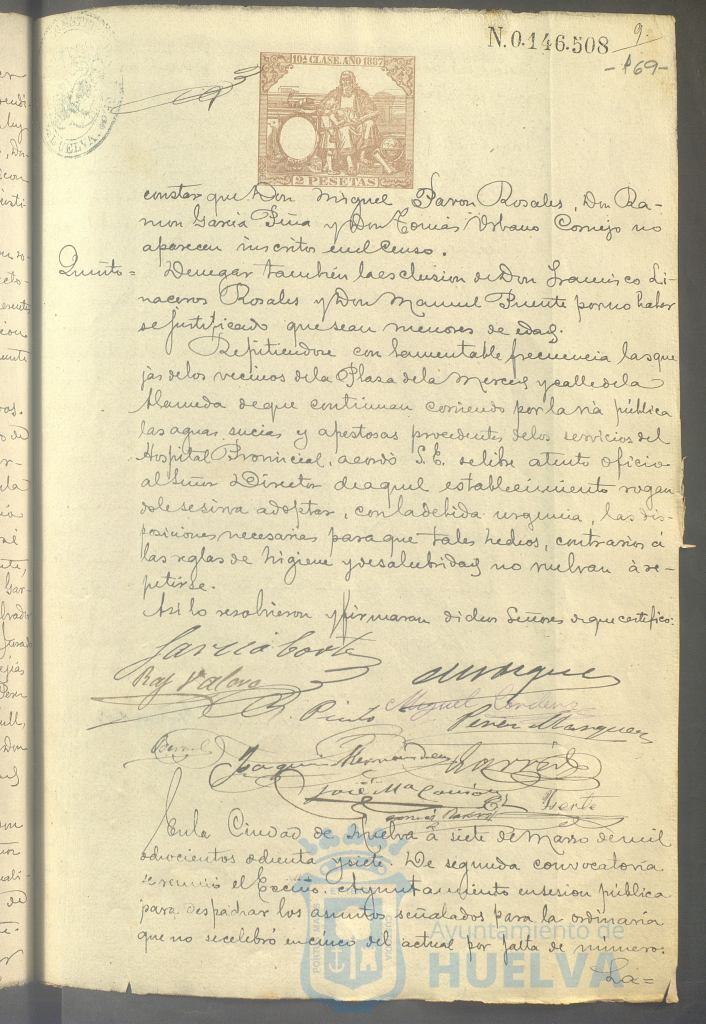 N.0.146.508
9.
-169-
HUELVA
10ª CLASE. AÑO 1887
2 PESETAS
constar que Don Miguel Pavon Rosales, Don Ra-
mon Garcia Piña y Don Tomás Urbano Cornejo no
aparecen inscritos en el Censo.
Quinto = Denegar también la esclusion de Don Francisco Li-
naceros Rosales y Don Manuel Puente por no haber
se justificado que sean menores de edad.
Repitiendose con lamentable frecuencia las que
jas de los vecinos de la Plaza de la Merced y calle de la
Alameda de que continuan corriendo por la via pública
las aguas sucias y apestosas procedentes de los servicios del
Hospital Provincial, acordó S.E. se libre atento oficio
al Señor Director de aquel establecimiento rogan
dole se sirva adoptar, con la debida urgencia, las dis-
posiciones necesarias para que tales hechos, contrarios á
las reglas de higiene y de salubridad, no vuelvan á re-
petirse.
Asi lo resolvieron y firmaran dichos Señores de que certifico:
Garcia
Raf
Pinto Miguel
Perez Marquez
Joaquin Hernandez
José Mª
En la Ciudad de Huelva á siete de Marzo de mil
ochocientos ochenta y siete. De segunda convocatoria
se reunió el Excmo. Ayuntamiento en sesion pública
para despachar los asuntos señalados para la ordinaria
que no se celebró en cinco del actual por falta de número.
La=
Ayuntamiento de
HUELVA